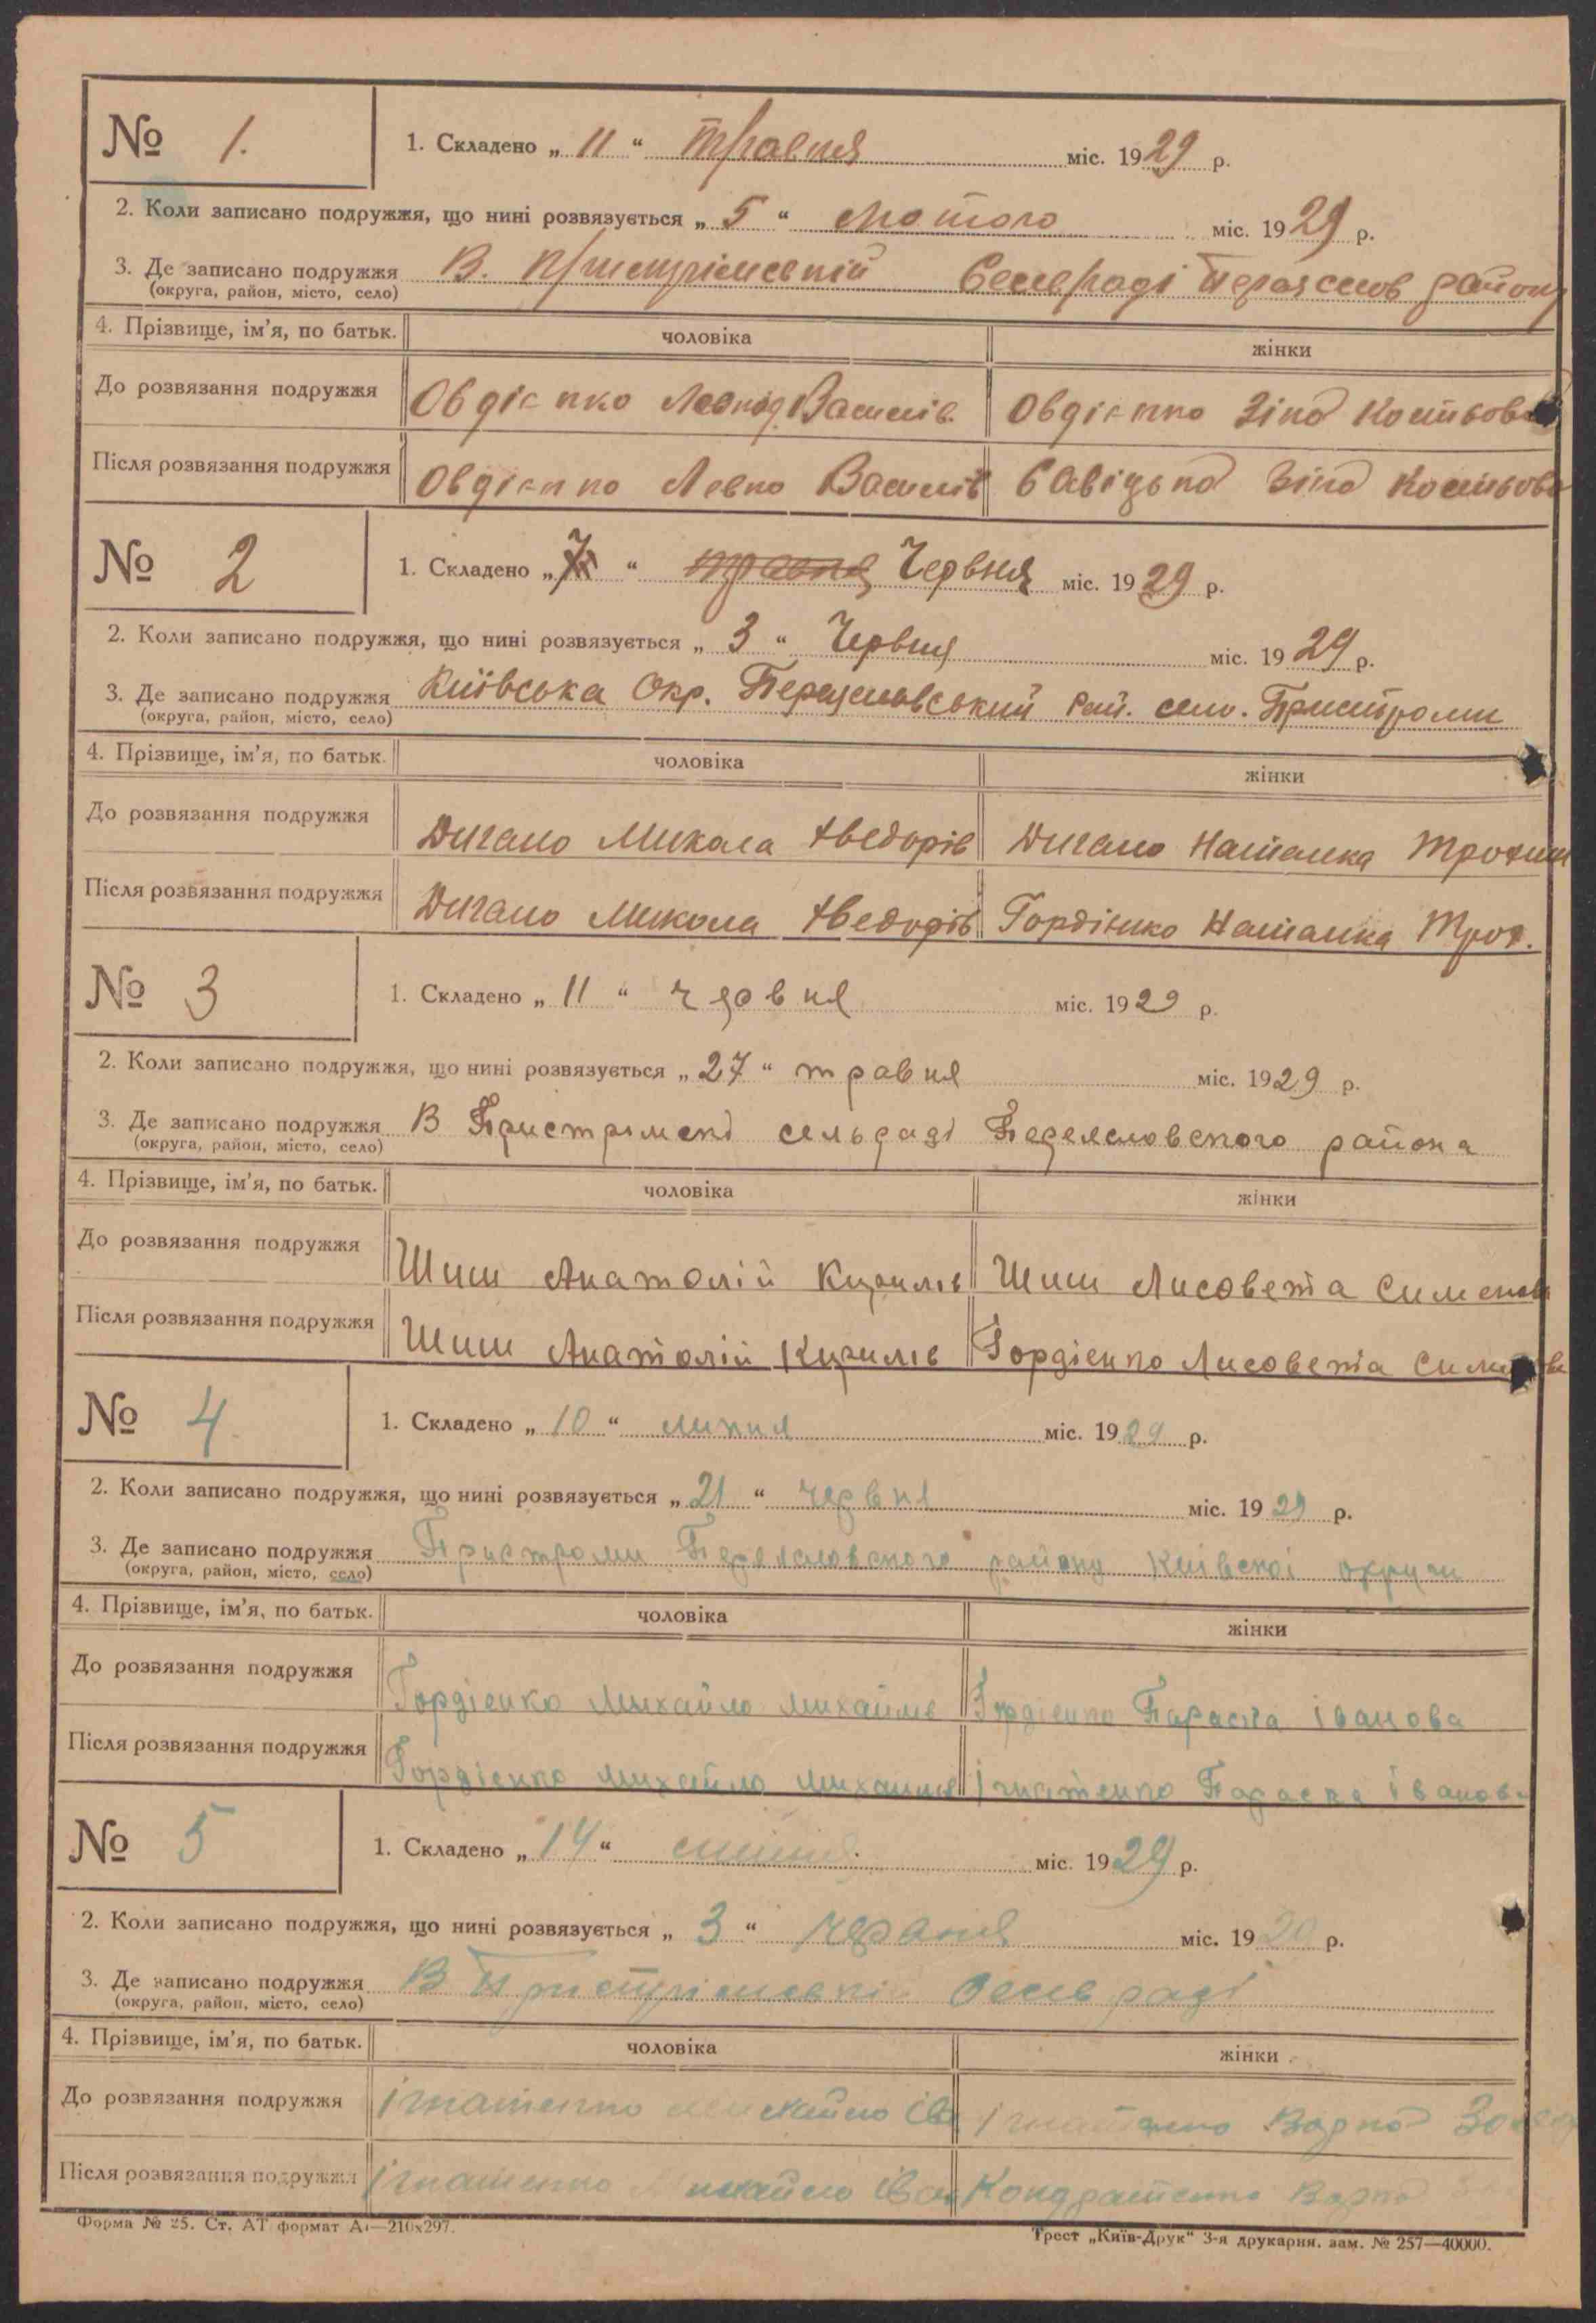 № 1. 1. Складено „ 11 “ травня міс. 1929 р.
2. Коли записано подружжя, що нині розвязується „ 5 “ Лютого міс. 1929 р.
3. Де записано подружжя В. Пристрімській Сельраді Переяслов району
(округа, район, місто, село)
4. Прізвище, ім’я, по батьк. чоловіка жінки
До розвязання подружжя Овдієнко Василів. Овдієнко Зіна Костьова
Після розвязання подружжя Овдієнко Левко Василів Савіцька Зіна Костьова
№ 2 1. Складено „ 7 “ Червня міс. 1929 р.
2. Коли записано подружжя, що нині розвязується „ 3 “ Червня міс. 1929 р.
3. Де записано подружжя Київська Окр. Переяславський Рай. село. Пристроми
(округа, район, місто, село)
4. Прізвище, ім’я, по батьк. чоловіка жінки
До розвязання подружжя Дигало Микола Хведорів Дигало Наталка Трохим
Після розвязання подружжя Дигало Микола Хведорів Гордієнко Наталка Трох.
№ 3 1. Складено „ 11 “ червня міс. 1929 р.
2. Коли записано подружжя, що нині розвязується „ 27 “ травня міс. 1929 р.
3. Де записано подружжя В Пристрімскі сельраді Переясловского района
(округа, район, місто, село)
4. Прізвище, ім’я, по батьк. чоловіка жінки
До розвязання подружжя Шиш Анатолій Кирилів Шиш Лисовета Сименова
Після розвязання подружжя Шиш Анатолій Кирилів Гордієнко Лисовета
№ 4 1. Складено „ 10 “ липня міс. 1929 р.
2. Коли записано подружжя, що нині розвязується „ 21 “ червня міс. 1929 р.
3. Де записано подружжя Пристроми Переясловского району Київскоі округи
(округа, район, місто, село)
4. Прізвище, ім’я, по батьк. чоловіка жінки
До розвязання подружжя Гордієнко Михайло Михайлів Гордієнко Параска Іванова
Після розвязання подружжя Гордієнко Михайло Михайлів Ігнатенко Параска Іванова
№ 5 1. Складено „ 14 “ липня. міс. 1929 р.
2. Коли записано подружжя, що нині розвязується „ 3 “ червня міс. 19 р.
3. Де записано подружжя В Пристрімські Сельраді
(округа, район, місто, село)
4. Прізвище, ім’я, по батьк. чоловіка жінки
До розвязання подружжя Ігнатенко Михайло Ів Ігнатенко Варка
Після розвязання подружжя Ігнатенко Михайло Іван Кондратенко Варка
Форма № 25. Ст. АТ формат А4—210х297.
Трест „Київ-Друк“ 3-я друкарня. зам. № 257—40000.